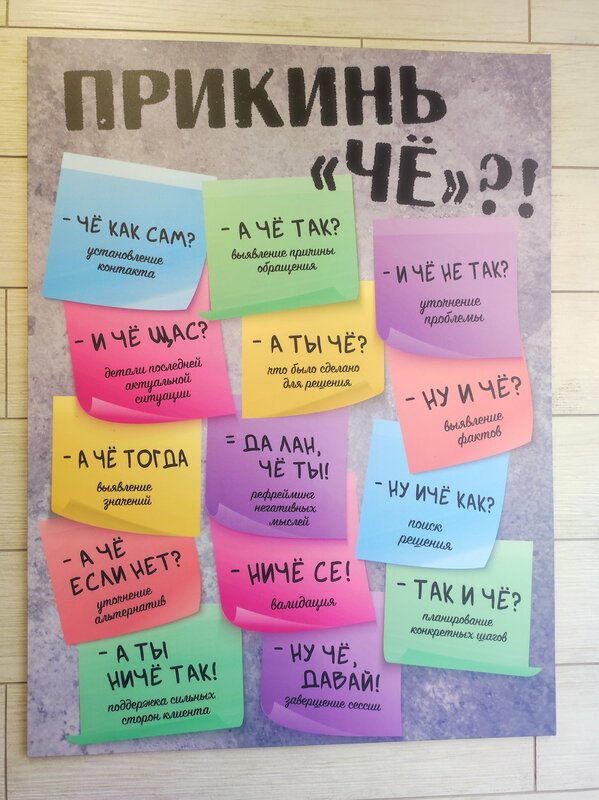 ПРИКИНЬ
«ЧЁ»?!
- ЧЁ КАК САМ?
установление
контакта
- А ЧЁ ТАК?
выявление причины
обращения
- И ЧЁ НЕ ТАК?
уточнение
проблемы
- И ЧЁ ЩАС?
детали последней
актуальной
ситуации
- А ТЫ ЧЁ?
что было сделано
для решения
- НУ И ЧЁ?
выявление
фактов
- А ЧЁ ТОГДА
выявление
значений
= ДА ЛАН,
ЧЁ ТЫ!
рефрейминг
негативных
мыслей
- НУ ИЧЁ КАК?
поиск
решения
- А ЧЁ
ЕСЛИ НЕТ?
уточнение
альтернатив
- НИЧЁ СЕ!
валидация
- ТАК И ЧЁ?
планирование
конкретных шагов
- А ТЫ
НИЧЁ ТАК!
поддержка сильных
сторон клиента
- НУ ЧЁ,
ДАВАЙ!
завершение сессии